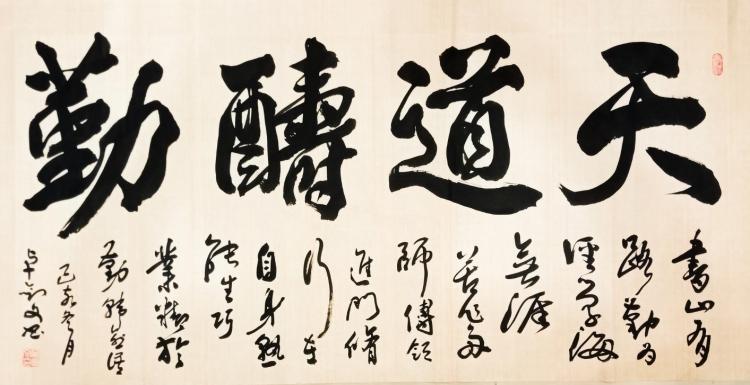 天道醻勤
書山有
路勤为
徑学海
無涯
苦作舟
師傅领
進門脩
行在
自身熟
能生巧
業精於
勤韩愈语
己亥冬月